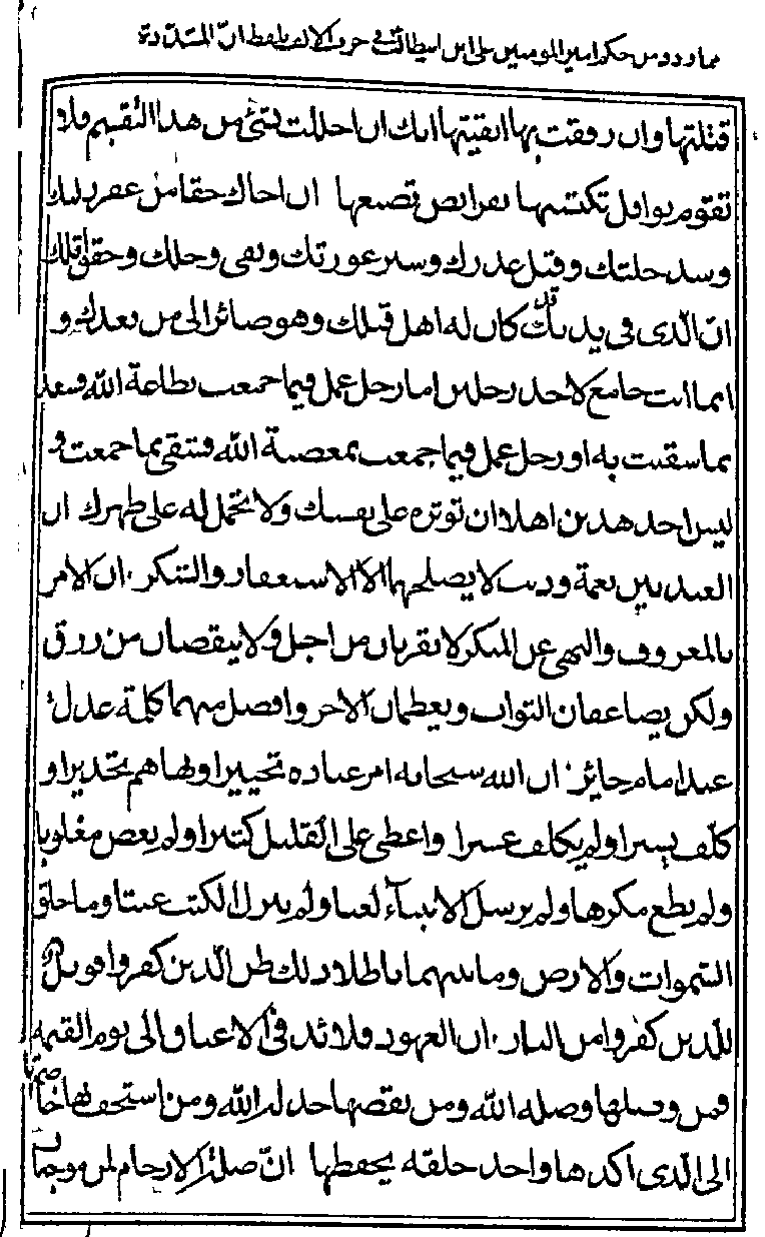 مما ورد من حكم امير المومنين علي ابن ابيطالب في حرف الالف بلفظ انّ المشدّدة
قتلتها وان رفقت بها ابقيتها انك ان اخللت بشئ من هذا التقسيم فلا
تقوم نوافل تكتسبها بفرايض تضيعها ان اخاك حقا من غفر زلتك
وسد خلتك وقبل عذرك وستر عورتك ونفى وجلك وحقق املك
انّ الّذى في يديك قد كان له اهل قبلك وهو صائر الى من بعدك و
انما انت جامع لاحد رجلين اما رجل عمل فيما جمعت بطاعة الله فسعد
بما شقيت به او رجل عمل فيما جمعت بمعصية الله فشقى بما جمعت و
ليس احد هذين اهلا ان توثره على نفسك ولا تحمل له على ظهرك ان
العبد بين نعمة وذنب لا يصلحهما الا الاستغفار والشكر ان الامر
بالمعروف والنهى عن المنكر لا يقربان من اجل ولا ينقصان من رزق
ولكن يضاعفان الثواب ويعظمان الاجر وافضل منهما كلمة عدل
عند امام جائر ان الله سبحانه امر عباده تخييرا ونهاهم تحذيرا و
كلّف يسيرا ولم يكلف عسرا واعطى على القليل كثيرا ولم يعص مغلوبا
ولم يطع مكرها ولم يرسل الانبياء لعبا ولم ينزل الكتب عبثا وما خلق
السّموات والارض وما بينهما باطلا ذلك ظن الّذين كفروا فويل
للّذين كفروا من النار ان العهود قلائد في الاعناق الى يوم القيمة
فمن وصلها وصله الله ومن نقضها خذله الله ومن استخف بها خاصمته
الى الّذى اكدها واخذ خلقه بحفظها انّ صلة الارحام لمن موجبات